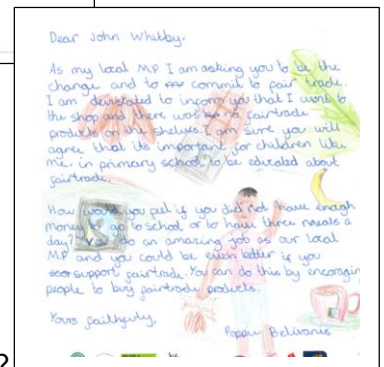 Dear John Whitby,
As my local MP I am asking you to be the
change and to commit to fair trade.
I am devistated to inform you that I went to
the shop and there was no fairtrade
products on the shelves. I am sure you will
agree that its important for children like
me, in primary school to be educated about
fairtrade.
How would you feel if you did not have enough
money to go to school or to have three meals a
day? You do an amazing job as our local
MP and you could be even better if you
support fairtrade. You can do this by encoragin
people to buy fairtrade products.
Yours faithfully,
?